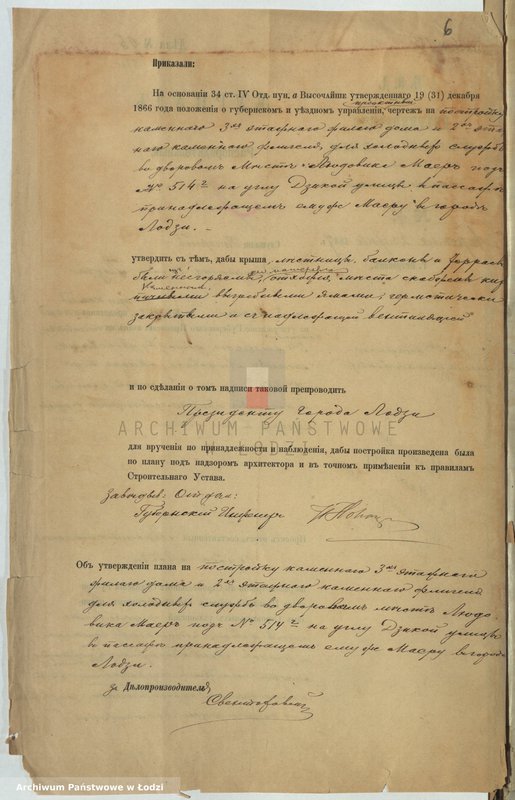 6
Приказали:
На основаніи 34 ст. IV Отд. пун. а Высочайше утвержденнаго 19 (31) декабря
1866 года положенія о губернском и уѣздном управленіи, чертежъ на постройку
каменнаго 3хъ этажнаго жилаго дома и 2хъ этаж
наго каменнаго флигеля для холодныхъ службъ
во дворовомъ мѣстѣ Людовика Маеръ подъ
№ 514 на углу Дзикой улицы и пассажа
принадлежащемъ ему же Маеру въ городѣ
Лодзи.
утвердить съ тѣмъ, дабы крыша, лѣстницы, балконы и террасы
были несгораемы, отхожія мѣста снабжены
выгребными ямами, герметически
закрытыми и съ надлежащей вентиляціей
и по сдѣланіи о томъ надписи таковой препроводить
Президенту города Лодзи
ARCHIWUM PAŃSTWOWE
W ŁODZI
для врученія по принадлежности и наблюденія, дабы постройка произведена была
по плану подъ надзоромъ архитектора и въ точномъ примѣненіи къ правиламъ
Строительнаго Устава.
Завѣдыв. Отдѣл.:
Губернскій Инженеръ
Объ утвержденіи плана на постройку каменнаго 3хъ этажнаго
жилаго дома и 2хъ этажнаго каменнаго флигеля
для холодныхъ службъ во дворовомъ мѣстѣ Людо
вика Маеръ подъ № 514 на углу Дзикой улицы
и пассажа принадлежащемъ ему же Маеру въ городѣ
Лодзи.
за Дѣлопроизводитель,
Archiwum Państwowe w Łodzi